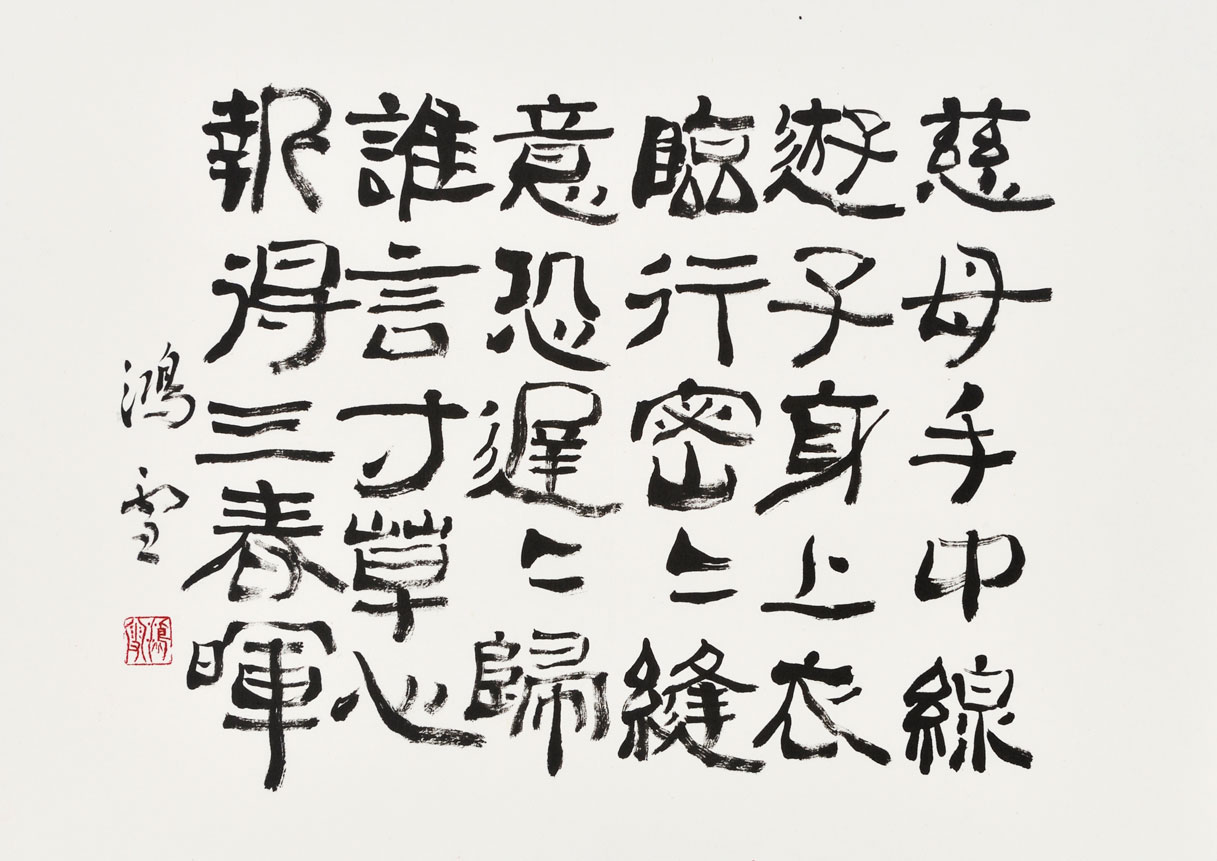 慈母手中線
遊子身上衣
臨行密〻縫
意恐遲〻歸
誰言寸草心
報得三春暉
鴻雪